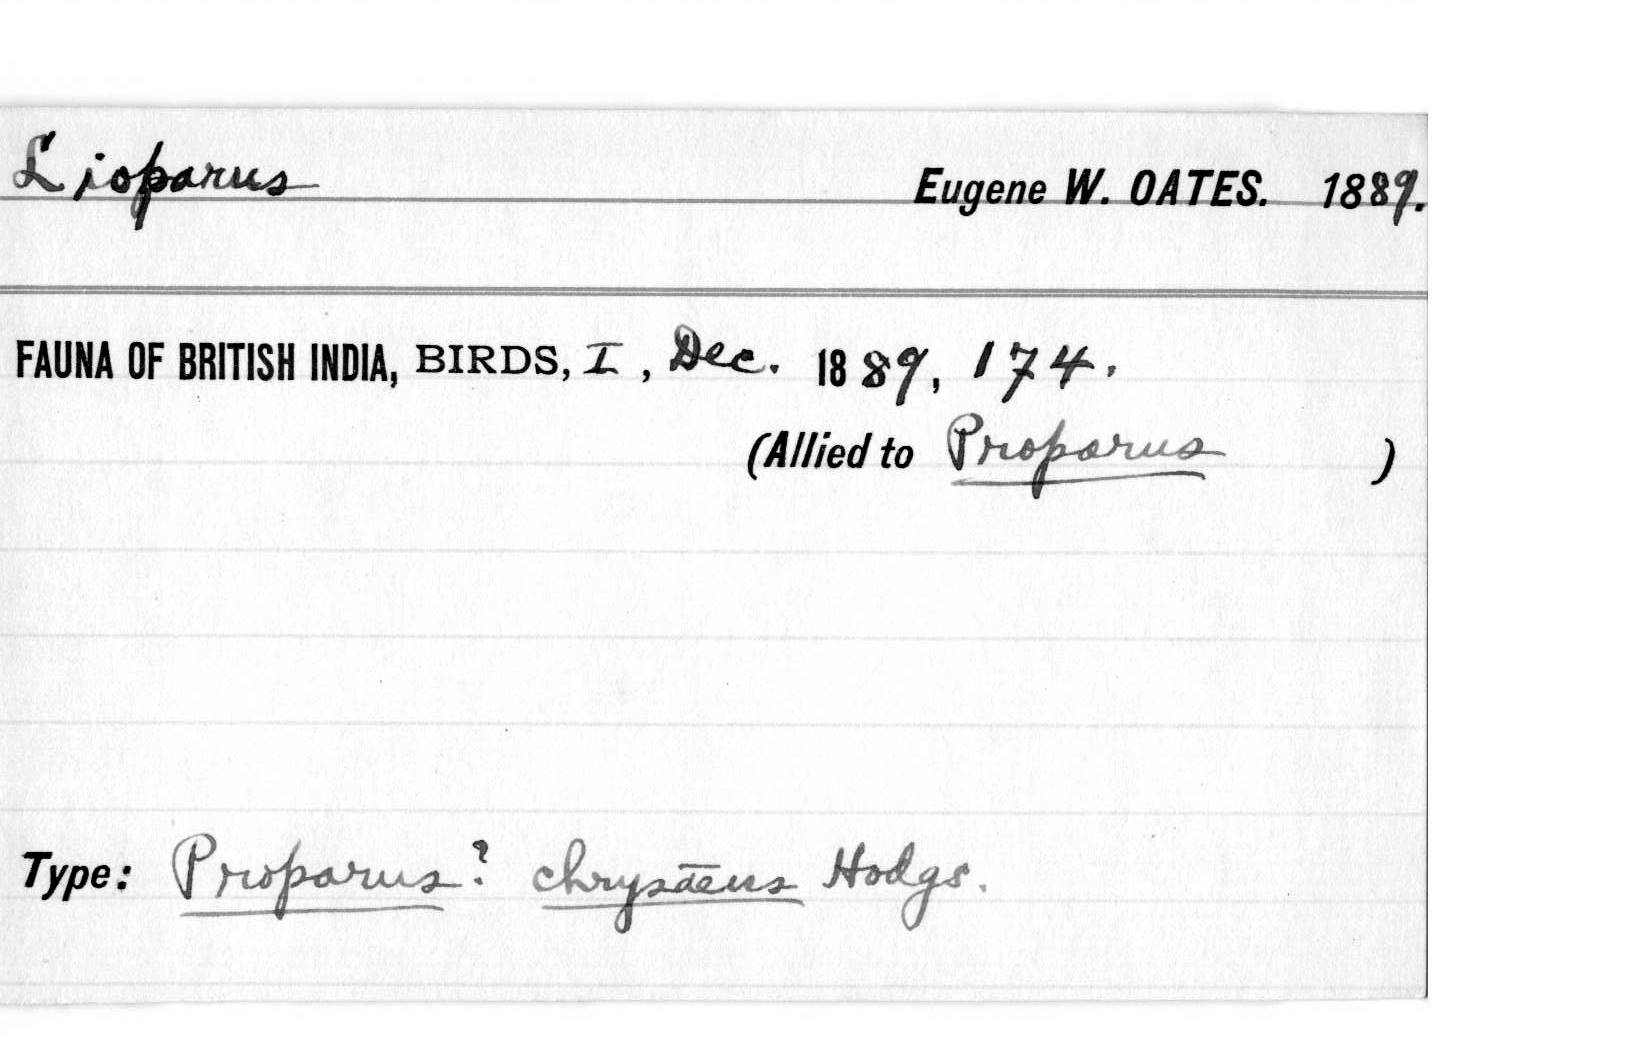 Lioparus Eugene W. OATES. 1889.
FAUNA OF BRITISH INDIA, BIRDS, I, Dec. 1889, 174.
(Allied to Proparus )
Type: Proparus? chrysaeus Hodgs.